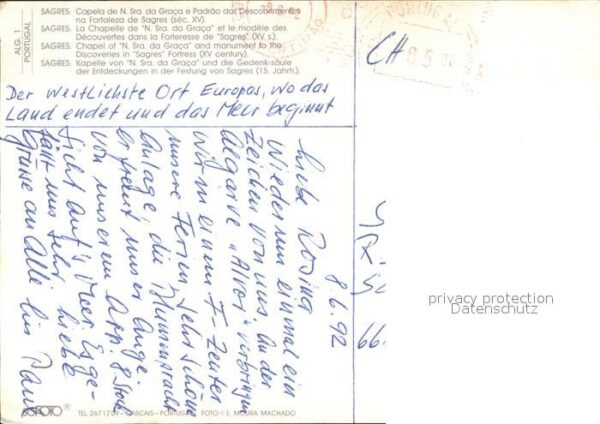 SAGRES: Capela de N. Sra. da Graça e Padrão das Descobrimentos
na Fortaleza de Sagres (séc. XV).
SAGRES: La Chapelle de "N. Sra. da Graça" et le modèle des
Découvertes dans la Forteresse de "Sagres" (XV s.).
SAGRES: Chapel of "N. Sra. da Graça" and monument to the
Discoveries in "Sagres" Fortress (XV century).
SAGRES: Kapelle von "N. Sra. da Graça" und die Gedenk-säule
der Entdeckungen in der Festung von Sagres (15. Jahrh.).
ALG. 1
PORTUGAL
CH
PORTUGAL
85
Der westlichste Ort Europas, wo das
Land endet und das Meer beginnt
8.6.92
Liebe Rosina
Wiederum einmal ein
Zeichen von uns. An der
Algarve "Alvor" verbringen
wir in einem F-Zenter
unsere Ferien. Sehr schöne
Anlage, die Blumenpracht
erfreut uns er Auge.
von unserem App. 8 Stock
Sicht auf's Meer. Es ge-
fällt uns sehr. Liebe
Grüsse an Alle
66.
privacy protection
Datenschutz
TEL. 267 - CASCAIS - PORTUGAL FOTO E. MOURA MACHADO